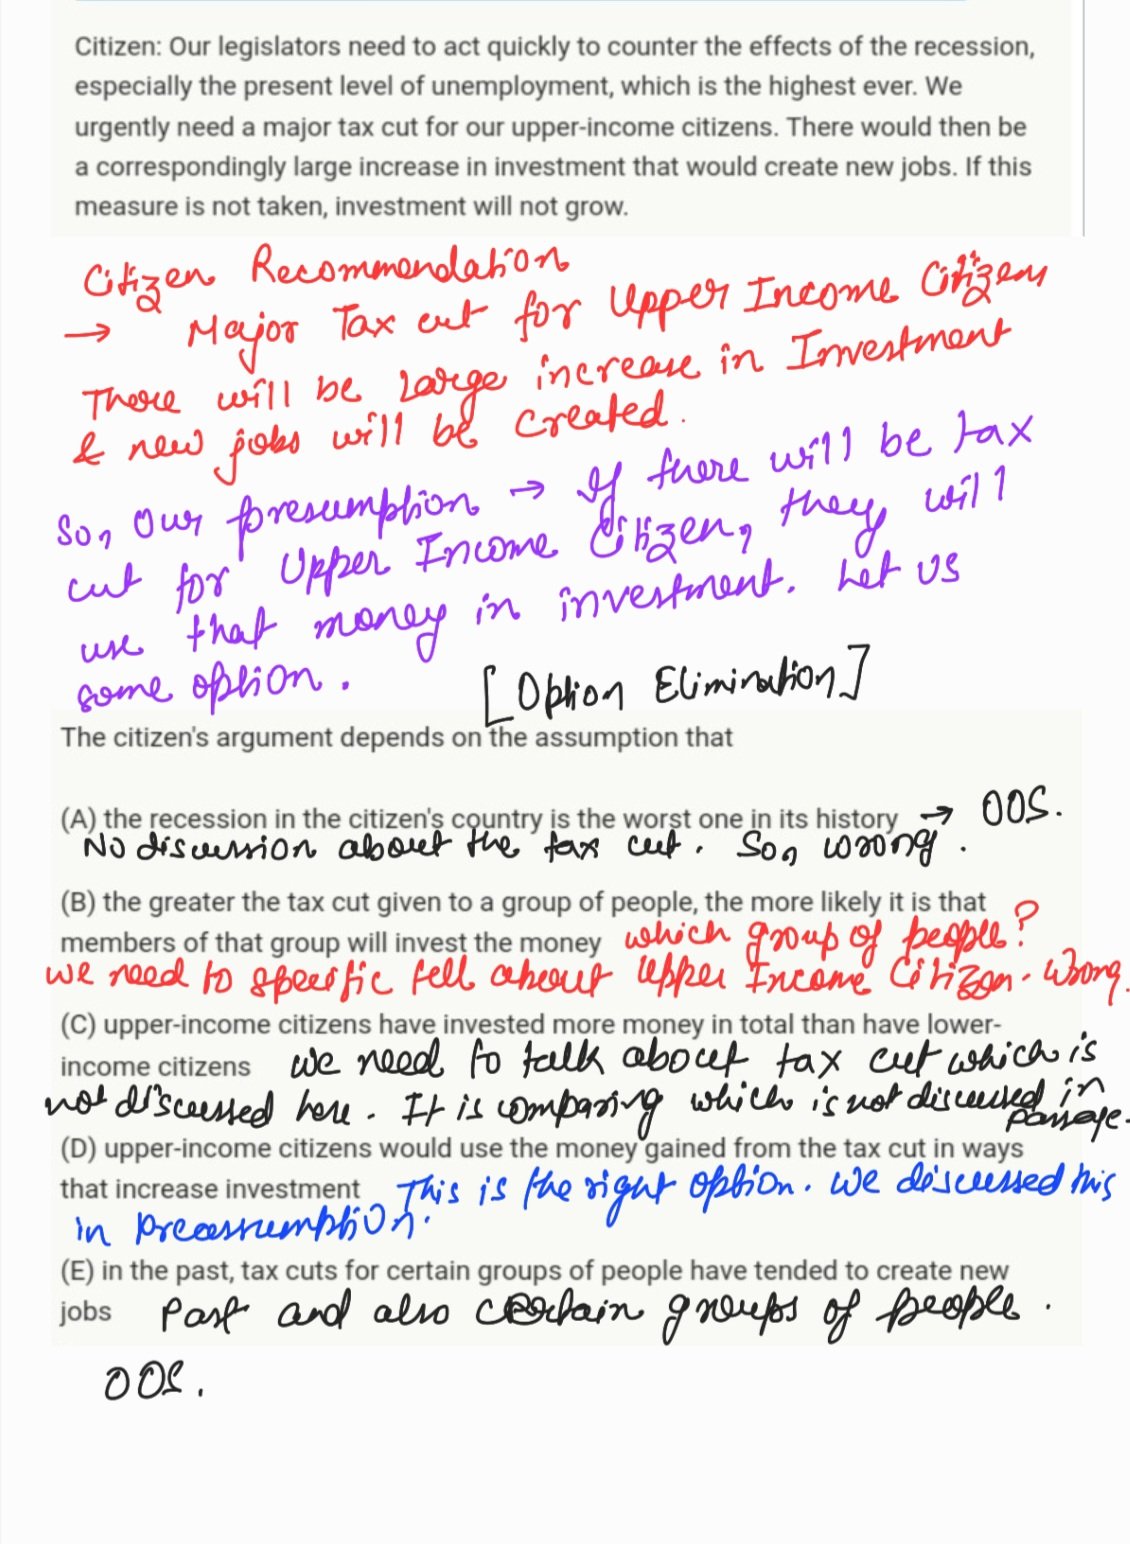 Citizen: Our legislators need to act quickly to counter the effects of the recession,
especially the present level of unemployment, which is the highest ever. We
urgently need a major tax cut for our upper-income citizens. There would then be
a correspondingly large increase in investment that would create new jobs. If this
measure is not taken, investment will not grow.
Citizen Recommendation
→ Major Tax cut for Upper Income Citizens
There will be Large increase in Investment
& new jobs will be created.
So, Our presumption → If there will be tax
cut for Upper Income Citizen, they will
use that money in investment. Let us
some option. [Option Elimination]
The citizen's argument depends on the assumption that
(A) the recession in the citizen's country is the worst one in its history → OOS.
No discussion about the tax cut. So, wrong.
(B) the greater the tax cut given to a group of people, the more likely it is that
members of that group will invest the money which group of people?
we need to specific tell about Upper Income Citizen. Wrong.
(C) upper-income citizens have invested more money in total than have lower-
income citizens we need to talk about tax cut which is
not discussed here. It is comparing which is not discussed in
passage.
(D) upper-income citizens would use the money gained from the tax cut in ways
that increase investment This is the right option. We discussed this
in preassumption.
(E) in the past, tax cuts for certain groups of people have tended to create new
jobs Past and also certain groups of people.
OOS.